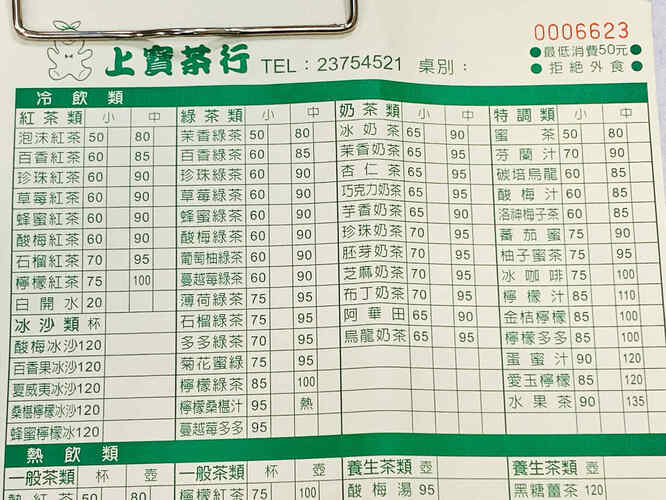 上寶茶行 TEL：23754521 桌別：
0006623
●最低消費50元●
●拒絕外食●
冷飲類
紅茶類 小 中
泡沫紅茶 50 80
百香紅茶 60 85
珍珠紅茶 60 90
草莓紅茶 60 90
蜂蜜紅茶 60 90
酸梅紅茶 60 90
石榴紅茶 70 95
檸檬紅茶 75 100
白開水 20
冰沙類 杯
酸梅冰沙 120
百香果冰沙 120
夏威夷冰沙 120
桑椹檸檬冰沙 120
蜂蜜檸檬冰 120
綠茶類 小 中
茉香綠茶 50 80
百香綠茶 60 85
珍珠綠茶 60 90
草莓綠茶 60 90
蜂蜜綠茶 60 90
酸梅綠茶 60 90
葡萄柚綠茶 60 90
蔓越莓綠茶 60 90
薄荷綠茶 75 95
石榴綠茶 75 95
多多綠茶 70 95
菊花蜜綠 75 95
檸檬綠茶 85 100
檸檬桑椹汁 95 熱
蔓越莓多多 95
奶茶類 小 中
冰奶茶 65 90
茉香奶茶 65 90
杏仁茶 65 90
巧克力奶茶 65 90
芋香奶茶 65 90
珍珠奶茶 70 95
胚芽奶茶 70 95
芝麻奶茶 70 95
布丁奶茶 70 95
阿華田 65 90
烏龍奶茶 65 95
特調類 小 中
蜜茶 50 80
芬蘭汁 70 90
碳培烏龍 60 85
酸梅汁 60 85
洛神梅子茶 60 85
蕃茄蜜 75 90
柚子蜜茶 75 95
冰咖啡 75 100
檸檬汁 85 110
金桔檸檬 85 100
檸檬多多 85 100
蛋蜜汁 90 120
愛玉檸檬 85 120
水果茶 90 135
熱飲類
一般茶類 杯 壺
熱紅茶 50 80
一般茶類 杯 壺
檸檬綠茶 75 100
養生茶類 壺
酸梅湯 95
養生茶類 壺
黑糖薑茶 120